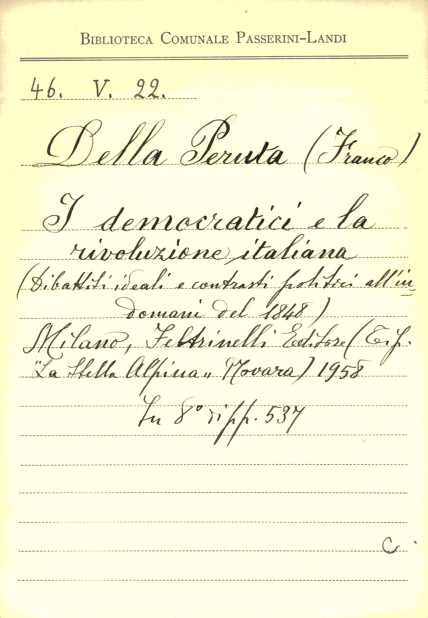 BIBLIOTECA COMUNALE PASSERINI-LANDI
46. V. 22.
Della Peruta (Franco)
I democratici e la
rivoluzione italiana
(Dibattiti ideali e contrasti politici all'in-
domani del 1848)
Milano, Feltrinelli Editore (Tip.
"La Stella Alpina„ Novara) 1958
In 8° di pp. 537
C.